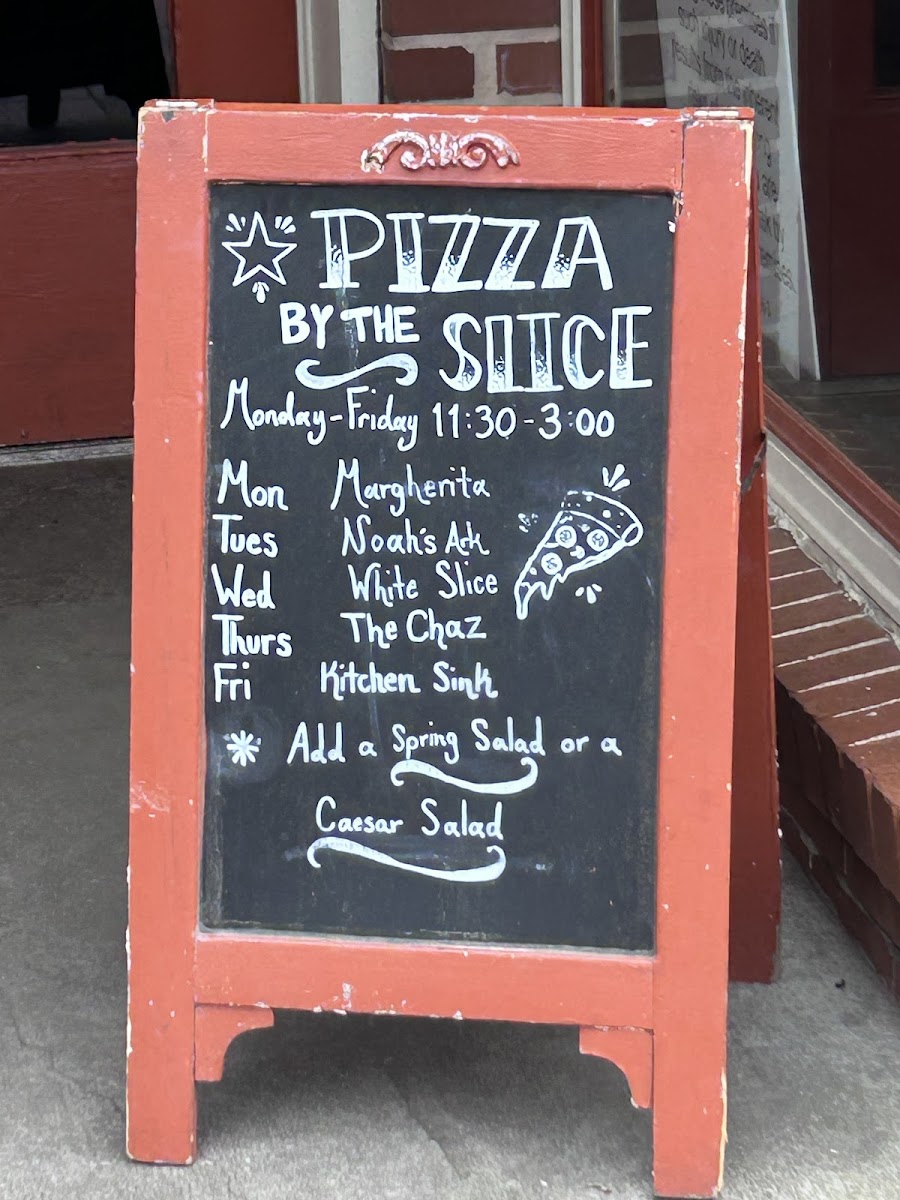 PIZZA
BY THE SLICE
Monday-Friday 11:30-3:00
Mon Margherita
Tues Noah's Ark
Wed White Slice
Thurs The Chaz
Fri Kitchen Sink
Add a Spring Salad or a
Caesar Salad